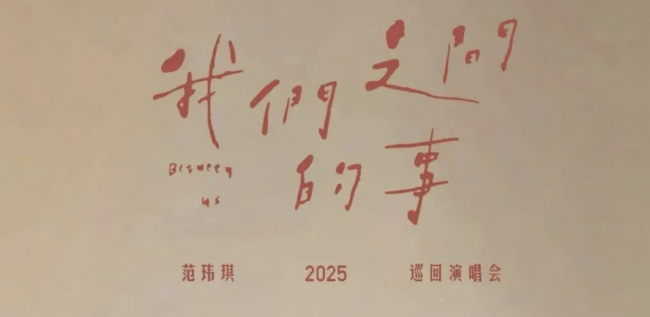 我們之間
的事
Between
us
范玮琪 2025 巡回演唱会